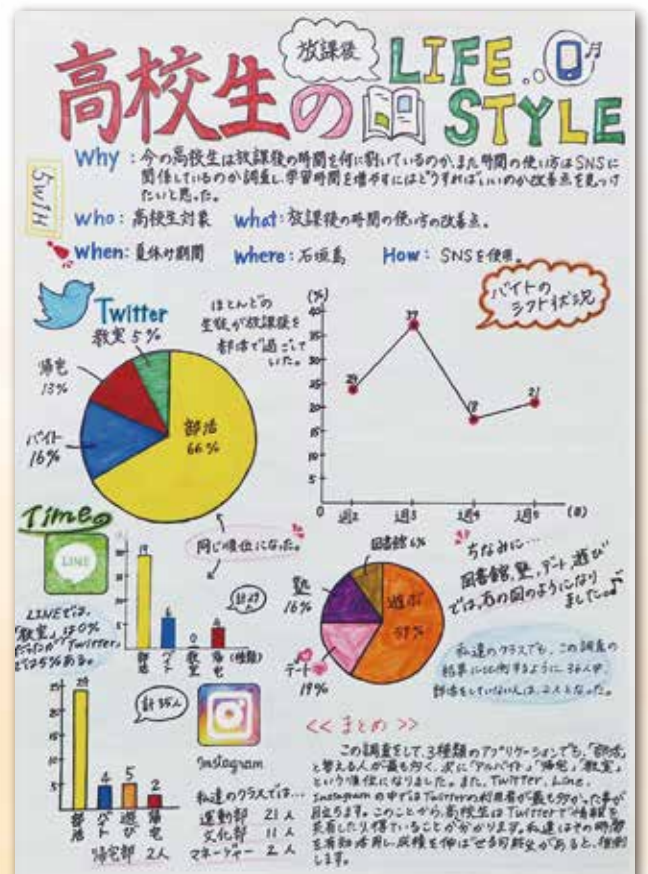 放課後
高校生の LIFE STYLE
5W1H
Why : 今の高校生は放課後の時間を何に割いているのか、また時間の使い方はSNSに
関係しているのか調査し、学習時間を増やすにはどうすればいいのか改善点を見つけ
たいと思った。
who: 高校生対象 what: 放課後の時間の使い方の改善点。
when: 夏休み期間 where: 石垣島 How: SNSを使用。
Twitter
教室 5%
帰宅
13%
バイト
16%
部活
66%
ほとんどの
生徒が放課後を
部活で過ごして
いた。
バイトの
シフト状況
(%)
40
35
30
25
20
15
10
5
0
24
37
18
21
週2 週3 週4 週5 (日)
Time
LINE
同じ順位になった。
LINEでは、
「教室」は0%
だったがTwitter
では5%ある。
19
6
0
4
計29
部活 バイト 教室 帰宅 (種類)
図書館 6%
塾
16%
遊ぶ
デート
19%
ちなみに…
図書館、塾、デート、遊び
では、右の図のようになり
ました。
私達のクラスでも、この調査の
結果に比例するように、36人中、
部活をしていない人は、2人となった。
25
20
15
10
5
4
5
2
計35人
部活 バイト 遊び 帰宅
Instagram
私達のクラスでは…
運動部 21人
文化部 11人
マネージャー 2人
帰宅部 2人
<< まとめ >>
この調査をして、3種類のアプリケーションでも、「部活」
と答える人が最も多く、次に「アルバイト」「帰宅」「教室」
という順位になりました。また、Twitter, Line,
Instagramの中ではTwitterの利用者が最も多かった事が
目立ちます。このことから、高校生はTwitterで情報を
共有したり得ていることが分かります。私達はその時間
を有効活用し、成績を伸ばせる可能性があると、推測
します。